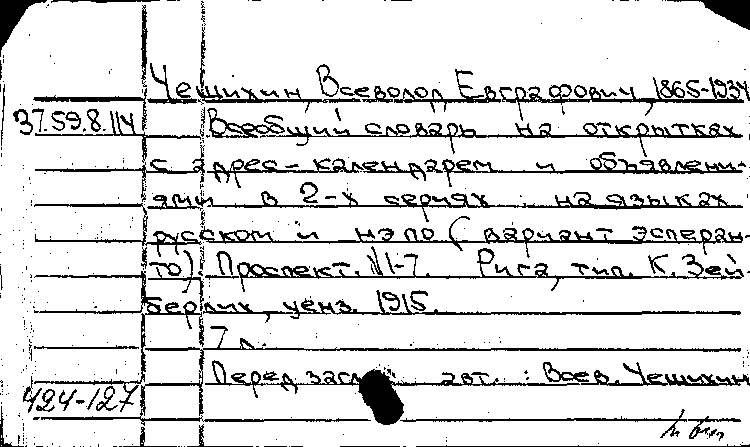 Чешихин, Всеволод Евграфович, 1865-1934
37.59.8.114 Всеобщий словарь на открытках
с адрес-календарем и объявлени-
ями в 2-х сериях: на языках
русском и нэпо (вариант эсперан-
то). Проспект. №1-7. Рига, тип. К. Зей-
берлих, ценз. 1915.
7 л.
Перед загл. авт.: Всев. Чешихин
424-127